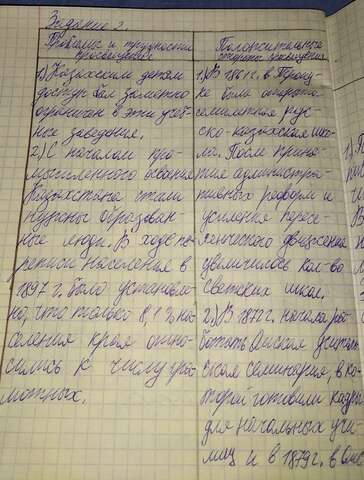 Задание 2.
Проблемы и трудности
просвещения
1) Казахским детям
доступ был заметно
ограничен в эти учеб-
ные заведения.
2) С началом про-
мышленного освоения
Казахстана стали
нужны образован-
ные люди. В ходе пе-
реписи населения в
1897 г. было установле-
но, что только 8,1 % на-
селения края отно-
сились к числу гра-
мотных.
Положительные
стороны просвещения
1) В 1861 г. в Тургу
ке была открыта
семилетняя рус-
ско-казахская шко-
ла. После приня-
тия администра-
тивных реформ и
усиления пересе-
ленческого движения
увеличилось кол-во
светских школ.
2) В 1872 г. начала ра-
ботать Омская учитель-
ская семинария, в ко-
торой готовили кадры
для начальных учи-
лищ и в 1879 г. в Омс